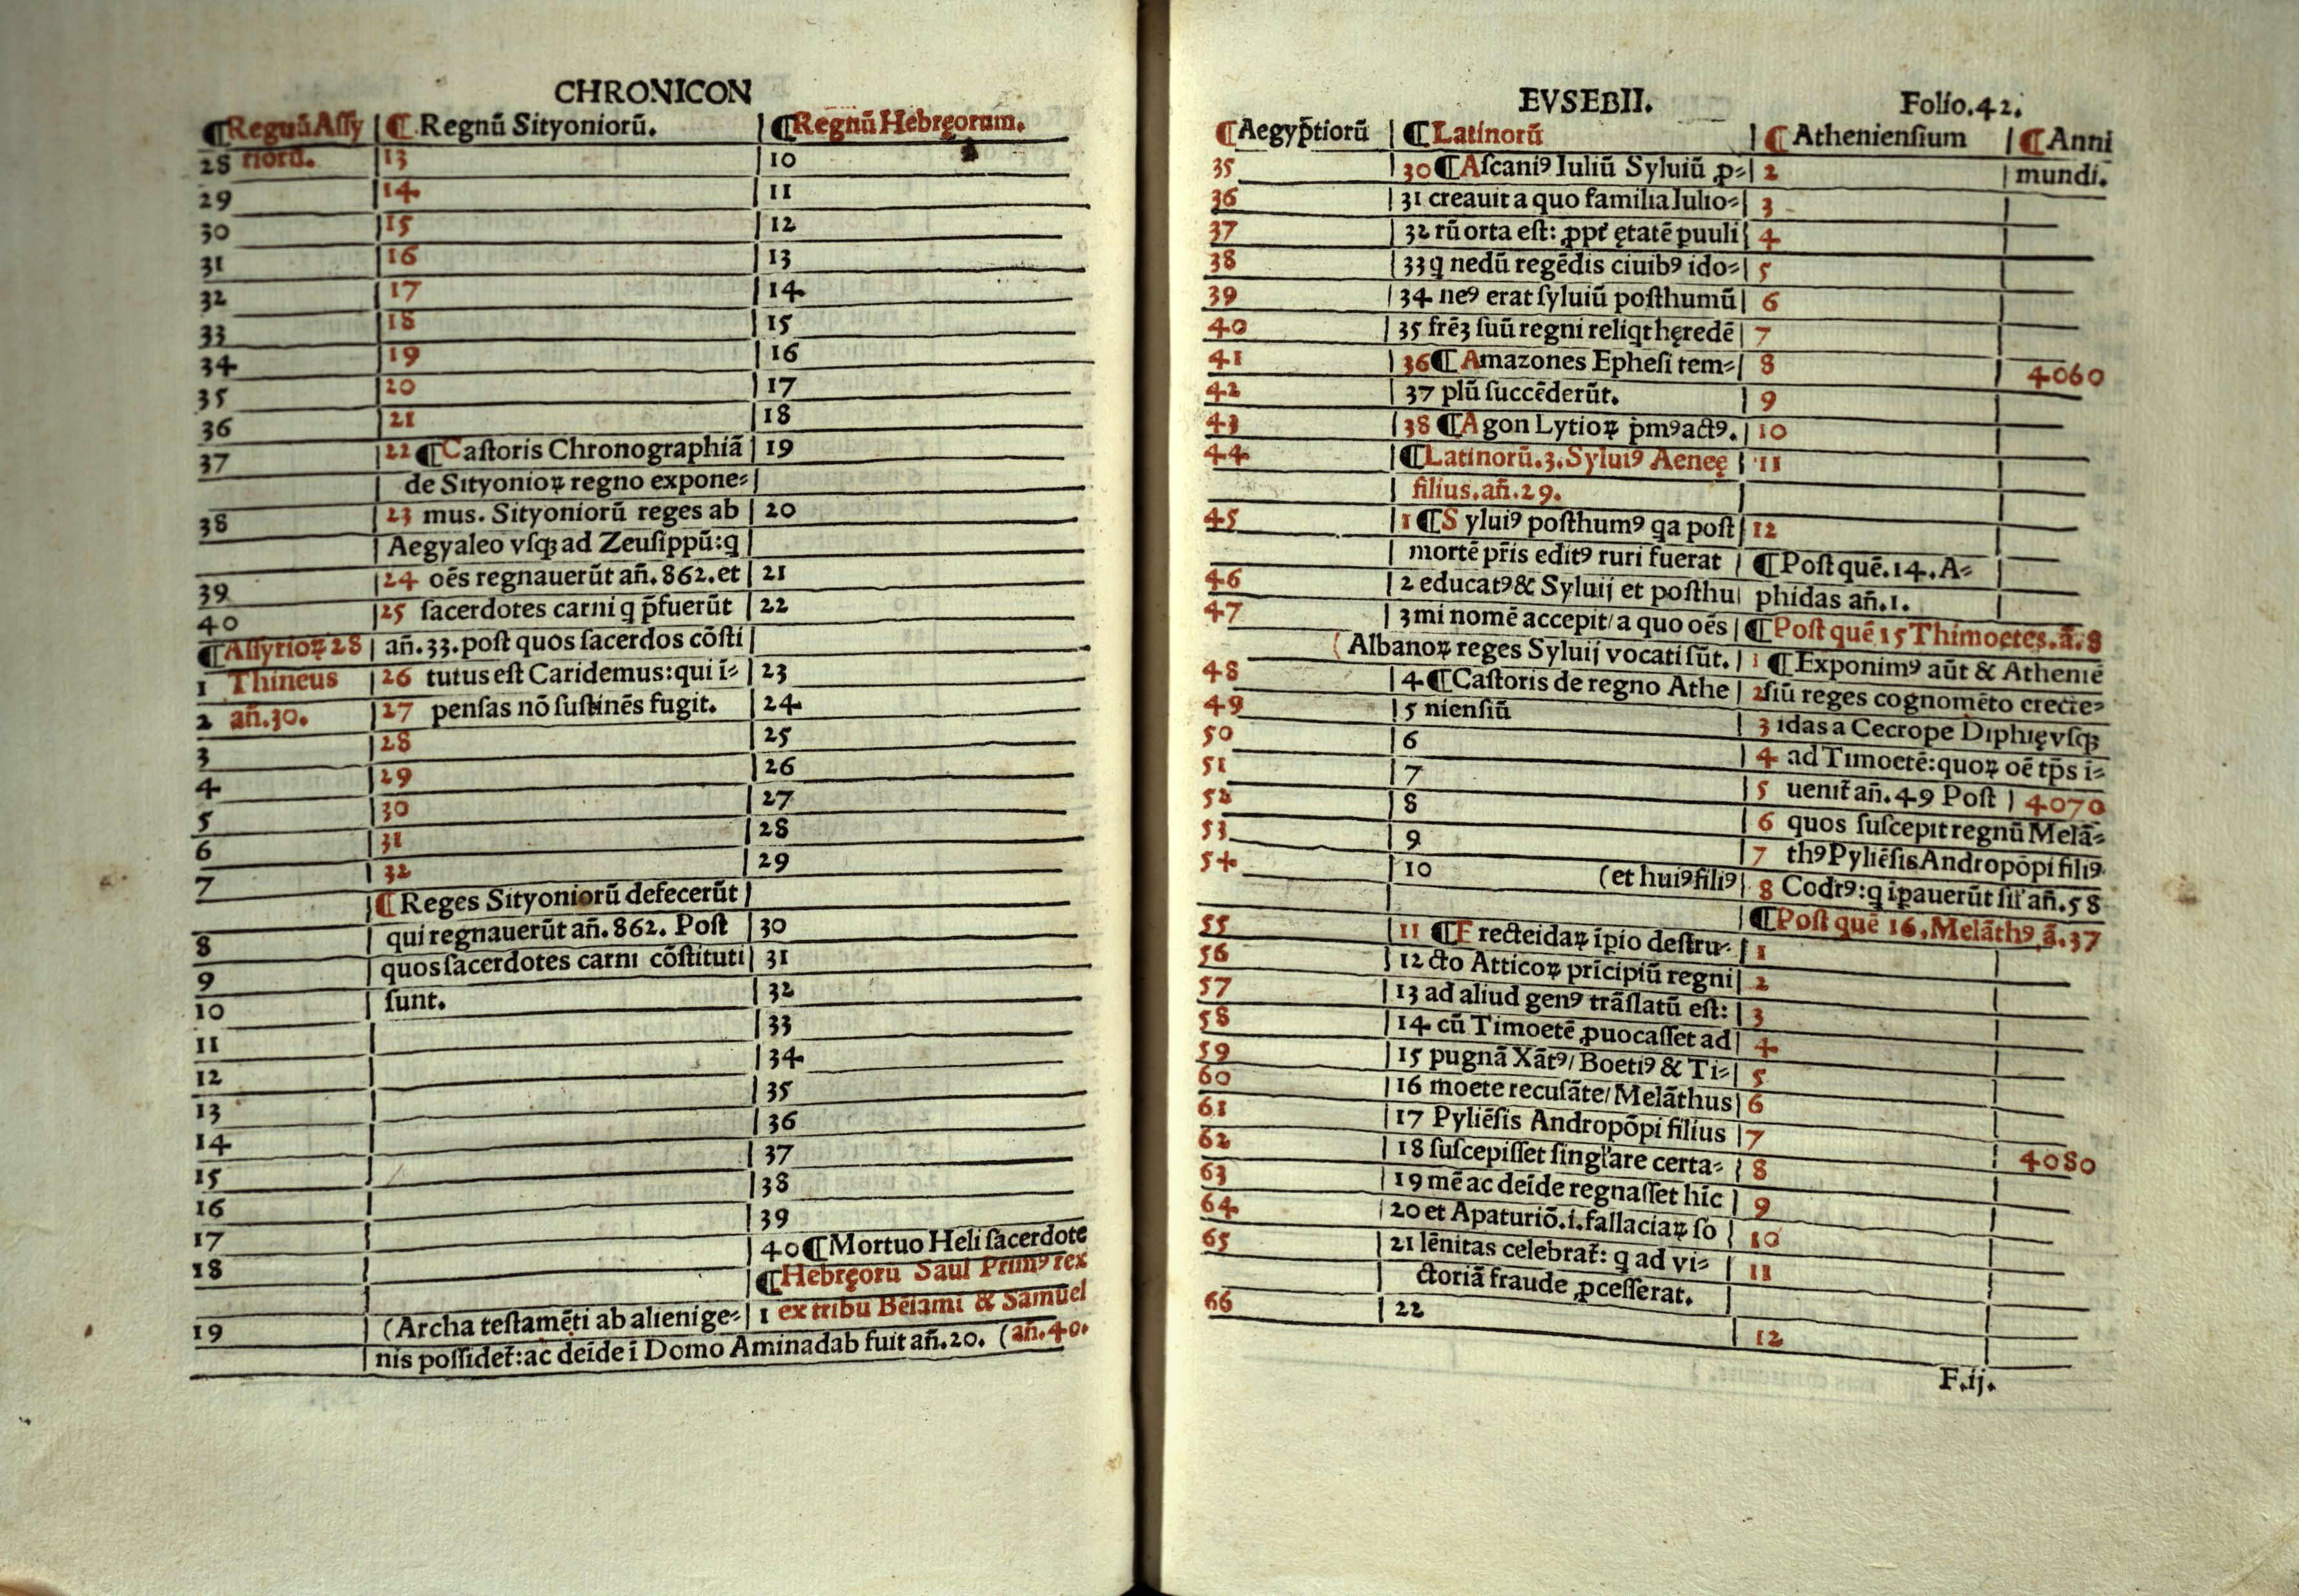 CHRONICON
¶Regnũ Aſſy | ¶ Regnũ Sityoniorũ. | ¶Regnũ Hebręorum.
28 riorũ. | 13 | 10
29 | 14 | 11
30 | 15 | 12
31 | 16 | 13
32 | 17 | 14
33 | 18 | 15
34 | 19 | 16
35 | 20 | 17
36 | 21 | 18
37 | 22 ¶Caſtoris Chronographiã | 19
| de Sityonioꝝ regno expone=|
38 | 23 mus. Sityoniorũ reges ab | 20
| Aegyaleo vſqꝫ ad Zeuſippũ:q |
39 | 24 oẽs regnauerũt añ.862.et | 21
40 | 25 ſacerdotes carni q p̃fuerũt | 22
¶Aſſyrioꝝ 28 | añ.33.poſt quos ſacerdos cõſti |
1 Thineus | 26 tutus eſt Caridemus:qui ĩ= | 23
2 añ.30. | 27 penſas nõ ſuſtinẽs fugit. | 24
3 | 28 | 25
4 | 29 | 26
5 | 30 | 27
6 | 31 | 28
7 | 32 | 29
| ¶Reges Sityoniorũ defecerũt |
8 | qui regnauerũt añ.862. Poſt | 30
9 | quos ſacerdotes carni cõſtituti | 31
10 | ſunt. | 32
11 | | 33
12 | | 34
13 | | 35
14 | | 36
15 | | 37
16 | | 38
17 | | 39
18 | | 40 ¶Mortuo Heli ſacerdote
| | ¶Hebręorũ Saul Primꝰ rex
19 | (Archa teſtamẽti ab alienige= | 1 ex tribu Bẽiami & Samuel
| nis poſſidet̃:ac deĩde ĩ Domo Aminadab fuit añ.20. (añ.40.
EVSEBII. Folio.42.
¶Aegyp̃tiorũ | ¶Latinorũ | ¶Athenienſium | ¶Anni
35 | 30 ¶Aſcaniꝰ Iuliũ Syluiũ ꝓ= | 2 | mundi.
36 | 31 creauit a quo familia Iulio= | 3
37 | 32 rũ orta eſt: ꝓpt̃ ętatẽ puuli | 4
38 | 33 q nedũ regẽdis ciuibꝰ ido= | 5
39 | 34 neꝰ erat ſyluiũ poſthumũ | 6
40 | 35 frẽꝫ ſuũ regni reliqt hęredẽ | 7
41 | 36 ¶Amazones Epheſi tem= | 8 | 4060
42 | 37 plũ ſuccẽderũt. | 9
43 | 38 ¶Agon Lytioꝝ p̃mꝰ actꝰ. | 10
44 | ¶Latinorũ.3.Syluiꝰ Aeneę | 11
| filius.añ.29. |
45 | 1 ¶Syluiꝰ poſthumꝰ qa poſt | 12
| mortẽ pr̃is editꝰ ruri fuerat | ¶Poſt quẽ.14.A=
46 | 2 educatꝰ & Syluij et poſthu | phidas añ.1.
47 | 3 mi nomẽ accepit/ a quo oẽs | ¶Poſt quẽ 15 Thimoetes.ã.8
(Albanoꝝ reges Syluij vocati ſũt. | 1 ¶Exponimꝰ aũt & Atheniẽ
48 | 4 ¶Caſtoris de regno Athe | 2 ſiũ reges cognomẽto erecte=
49 | 5 nienſiũ | 3 idas a Cecrope Diphię vſqꝫ
50 | 6 | 4 ad Timoetẽ:quoꝝ oẽ tp̃s ĩ=
51 | 7 | 5 uenit̃ añ.49 Poſt | 4070
52 | 8 | 6 quos ſuſcepit regnũ Melã=
53 | 9 | 7 thꝰ Pyliẽſis Andropõpi filiꝰ
54 | 10 (et huiꝰ filiꝰ | 8 Codrꝰ:q ĩpauerũt ſil̃ añ.58
| | ¶Poſt quẽ 16.Melãthꝰ ã.37
55 | 11 ¶Erecteidaꝝ ĩpio deſtru= | 1
56 | 12 cto Atticoꝝ prĩcipiũ regni | 2
57 | 13 ad aliud genꝰ trãſlatũ eſt: | 3
58 | 14 cũ Timoetẽ ꝓuocaſſet ad | 4
59 | 15 pugnã Xãtꝰ/ Boetiꝰ & Ti= | 5
60 | 16 moete recuſãte/ Melãthus | 6
61 | 17 Pyliẽſis Andropõpi filius | 7
62 | 18 ſuſcepiſſet ſingl'are certa= | 8 | 4080
63 | 19 mẽ ac deĩde regnaſſet hĩc | 9
64 | 20 et Apaturiõ.i.fallaciaꝝ ſo | 10
65 | 21 lẽnitas celebrat̃: q ad vi= | 11
| ctoriã fraude ꝓceſſerat. |
66 | 22 | 12
F.ij.